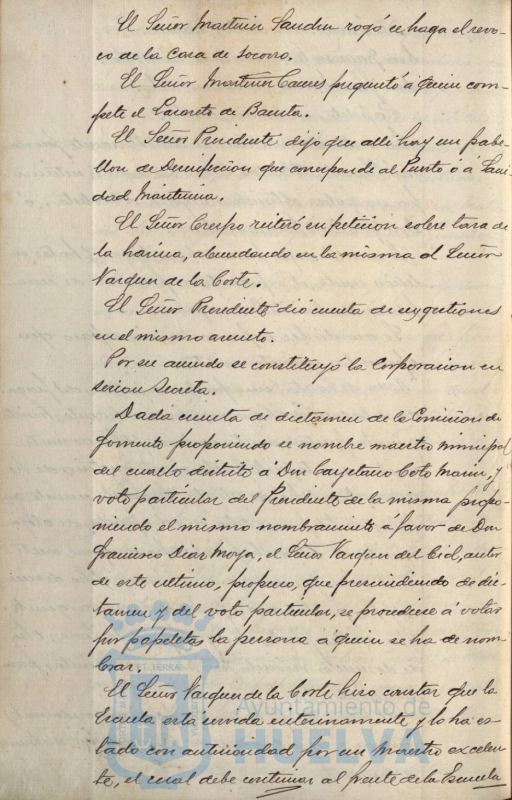 El Señor Martinez Sandru rogó se haga el revo-
co de la Casa de Socorro.
El Señor Martinez Caceres preguntó á quien com-
pete el Lazareto de Bacuta.
El Señor Presidente dijo que alli hay un pabe-
llon de Desinfeccion que corresponde al Puerto ó á Sani
dad Maritima.
El Señor Crespo reiteró su peticion sobre tasa de
la harina, abundando en la misma el Señor
Vazquez de la Corte.
El Señor Presidente dió cuenta de sus gestiones
en el mismo asunto.
Por su acuerdo se constituyó la Corporacion en
sesion Secreta.
Dada cuenta de dictamen de la Comision de
fomento proponiendo se nombre maestro municipal
del cuarto distrito á Don Cayetano Coto Marin, y
voto particular del Presidente de la misma propo-
niendo el mismo nombramiento á favor de Don
Francisco Diaz Moya, el Señor Vazquez del Cid, autor
de este ultimo, propuso, que prescindiendo de dic-
tamen y del voto particular, se procediese á votar
por papeletas la persona á quien se ha de nom-
brar.
El Señor Vazquez de la Corte hizo constar que la
Escuela está servida interinamente y lo ha es
tado con anterioridad por un maestro excelen-
te, el cual debe continuar al frente de la Escuela
Ayuntamiento de
HUELVA